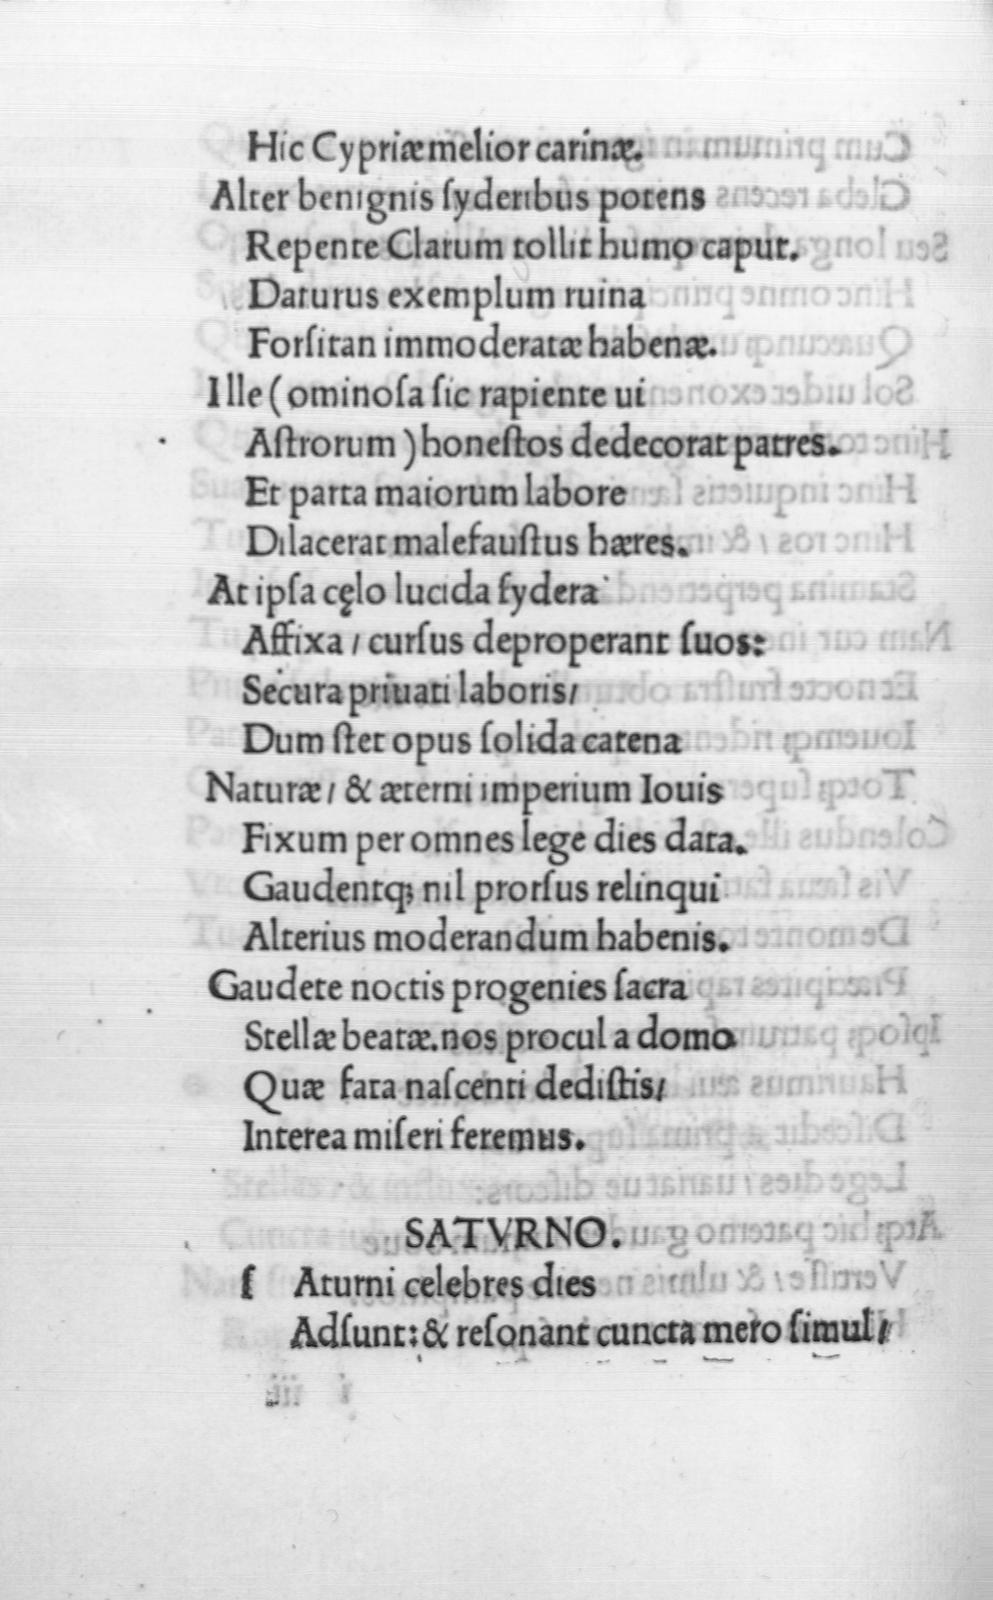 Hic Cypriæ melior carinæ.
Alter benignis ſyderibus potens
Repente Clarum tollit humo caput.
Daturus exemplum ruina
Forſitan immoderatæ habenæ.
Ille (ominoſa ſic rapiente ui
Aſtrorum) honeſtos dedecorat patres.
Et parta maiorum labore
Dilacerat malefauſtus hæres.
At ipſa cęlo lucida ſydera
Affixa / curſus deproperant ſuos:
Secura priuati laboris/
Dum ſtet opus ſolida catena
Naturæ / & æterni imperium Iouis
Fixum per omnes lege dies data.
Gaudentq; nil prorſus relinqui
Alterius moderandum habenis.
Gaudete noctis progenies ſacra
Stellæ beatæ. nos procul a domo
Quæ fata naſcenti dediſtis/
Interea miſeri feremus.
SATVRNO.
ſ Aturni celebres dies
Adſunt: & reſonant cuncta mero ſimul/